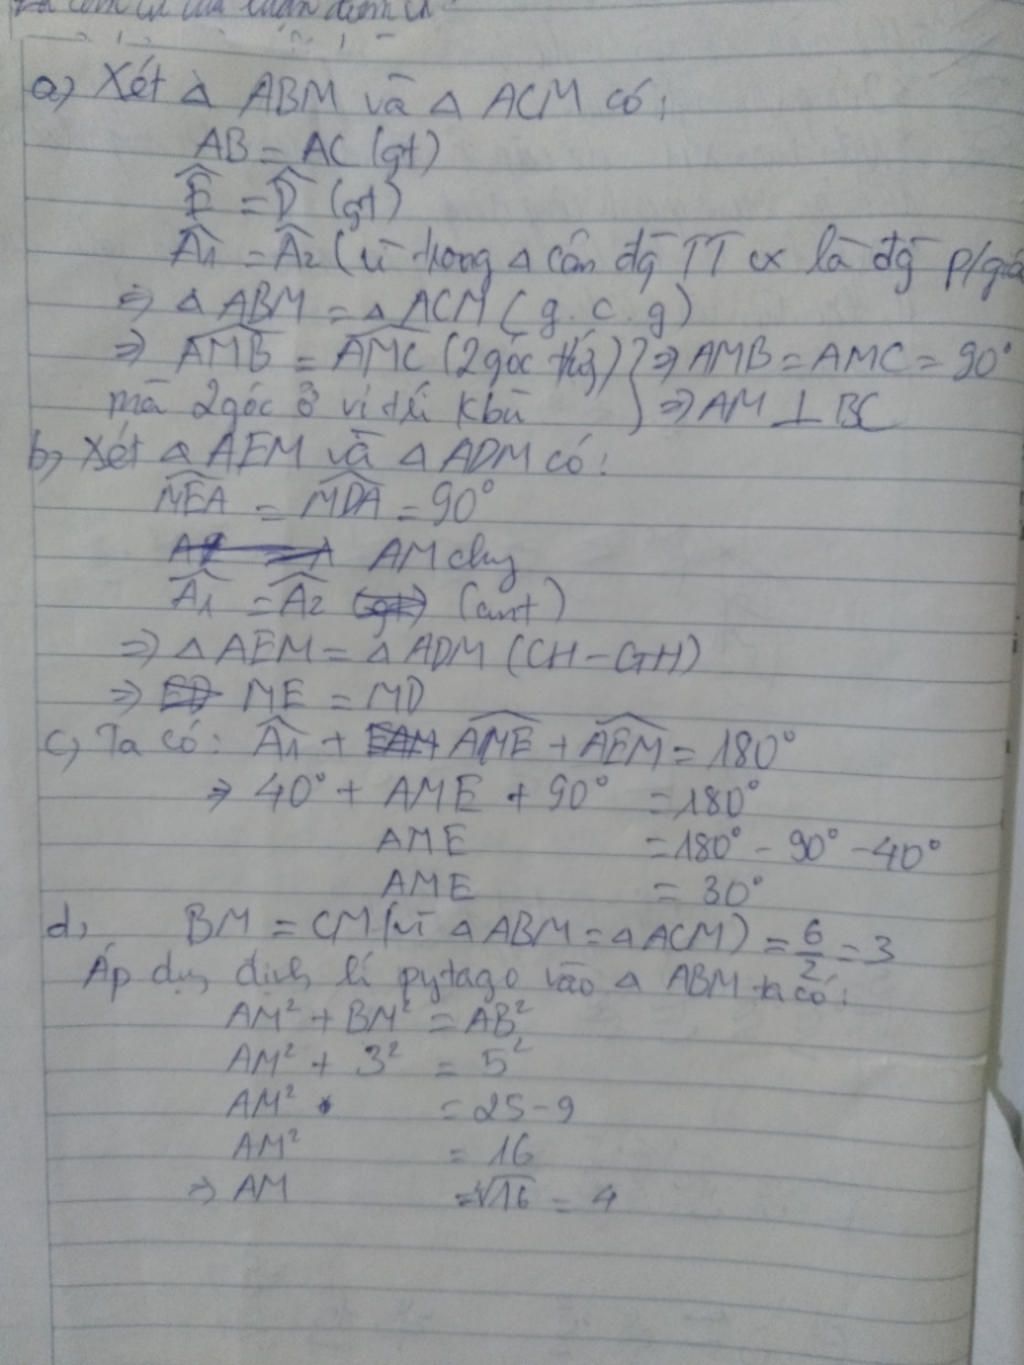 a) Xét Δ ABM và Δ ACM có:
AB = AC (gt)
Ê = D̂ (gt)
Â1 = Â2 (vì trong Δ cân đg TT cx là đg p/giá
=> Δ ABM = Δ ACM (g.c.g)
=> AMB = AMC (2góc tứ) } => AMB = AMC = 90°
mà 2góc ở vị trí kbù } => AM ⊥ BC
b, Xét Δ AEM và Δ ADM có:
MEA = MDA = 90°
AM chg
Â1 = Â2 (cmt)
=> Δ AEM = Δ ADM (CH-GH)
=> ME = MD
c, Ta có: Â1 + AME + AEM = 180°
=> 40° + AME + 90° = 180°
AME = 180° - 90° - 40°
AME = 30°
d, BM = CM (vì Δ ABM = Δ ACM) = 6/2 = 3
Áp dụg định lí pytago vào Δ ABM ta có:
AM² + BM² = AB²
AM² + 3² = 5²
AM² = 25 - 9
AM² = 16
=> AM = √16 = 4